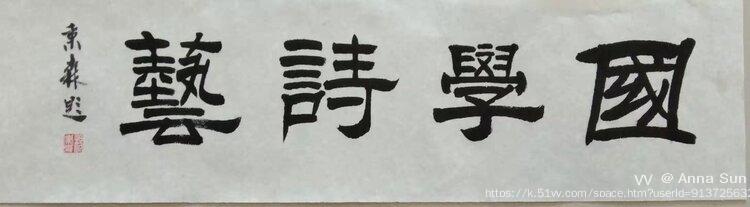 國學詩藝
秉森題
VV @ Anna Sun
https://k.51vv.com/space.htm?userId=913725632